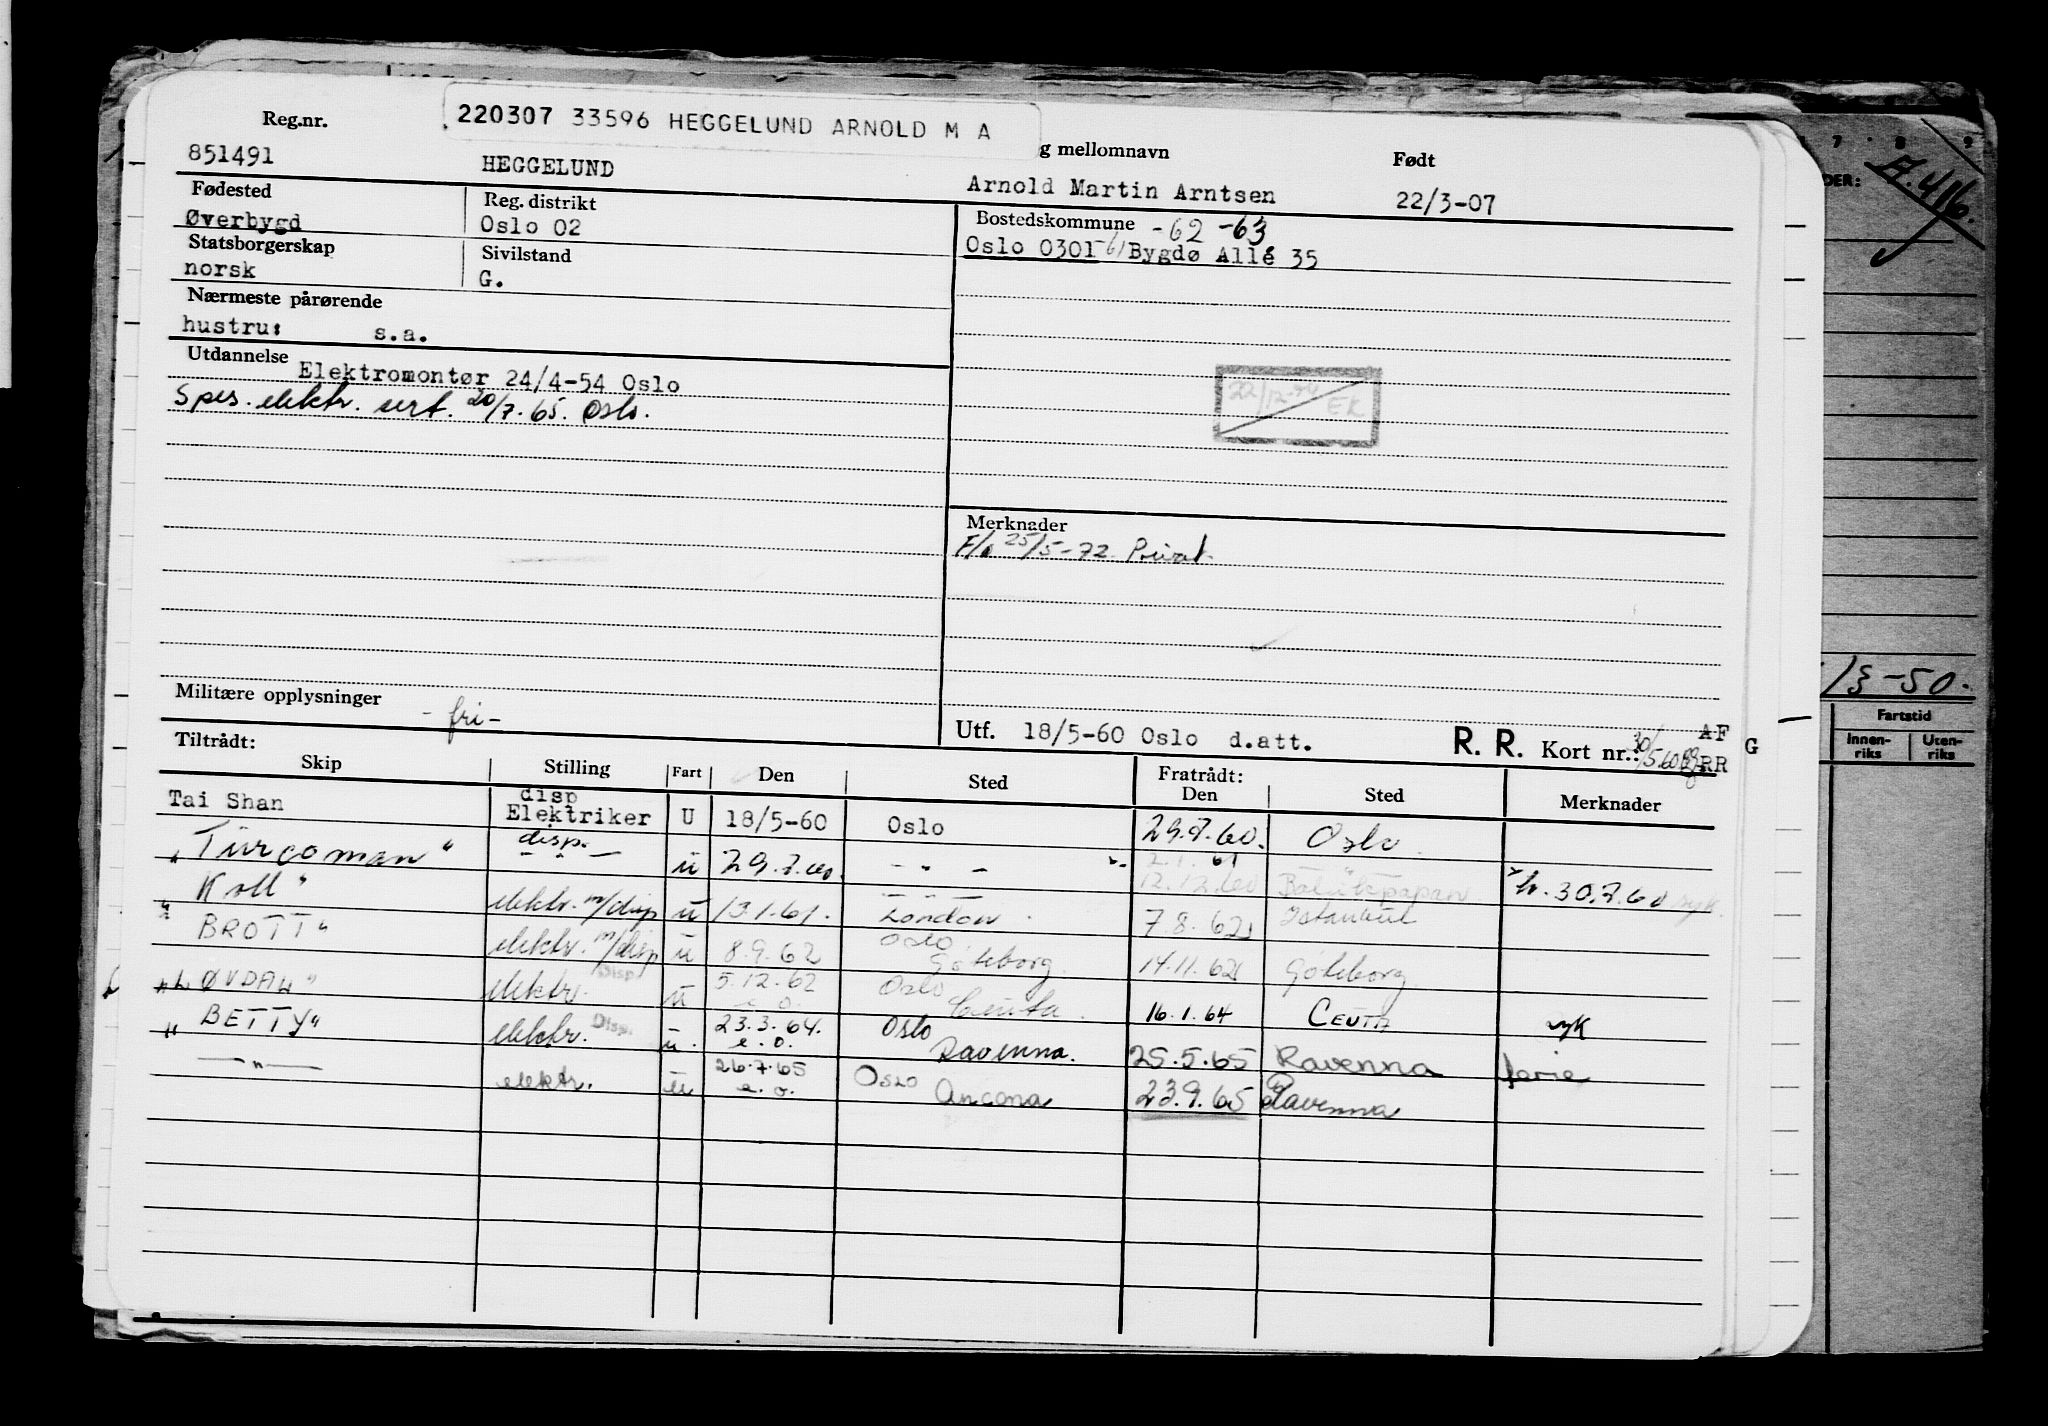 220307 33596 HEGGELUND ARNOLD M A
Reg.nr.
g mellomnavn
Født
851491
HEGGELUND
Arnold Martin Arntsen
22/3-07
Fødested
Reg. distrikt
Bostedskommune -62 -63
Øverbygd
Oslo 02
Oslo 0301 -61 Bygdø Allé 35
Statsborgerskap
Sivilstand
norsk
G.
Nærmeste pårørende
hustru: s.a.
Utdannelse
Elektromontør 24/4-54 Oslo
Spes. elektr. sert. 20/7.65. Oslo.
22/12-70 EK
Merknader
F/a 25/5-72 Privat.
Militære opplysninger
- fri -
Utf. 18/5-60 Oslo d.att.
R. R. Kort nr.: 30/5.60
AF
RR
G
Tiltrådt:
Fratrådt:
Skip Stilling Fart Den Sted Den Sted Merknader
Tai Shan disp Elektriker U 18/5-60 Oslo 29.7.60. Oslo
"Turcoman" disp. - " - u 29.7.60. - " - 2.1.61 12.12.60 Balikpapan 30.7.60 syk.
"Koll" elektr. m/disp u 13.1.61. London 7.8.62 Istanbul
"BROTT" elektr. m/disp u 8.9.62 Oslo Göteborg 14.11.62 Göteborg
"ØVDAL" elektr. Disp. u 5.12.62 e.o. Oslo Ceuta 16.1.64 CEUTA syk
"BETTY" elektr. Disp. u. 23.3.64. e.o. Oslo Ravenna. 25.5.65 Ravenna ferie
— " — elektr. u 26.7.65 e.o. Oslo Ancona 23.9.65 Ravenna
7 8 9
DER:
/3-50.
Fartstid
Innen-riks
Uten-riks